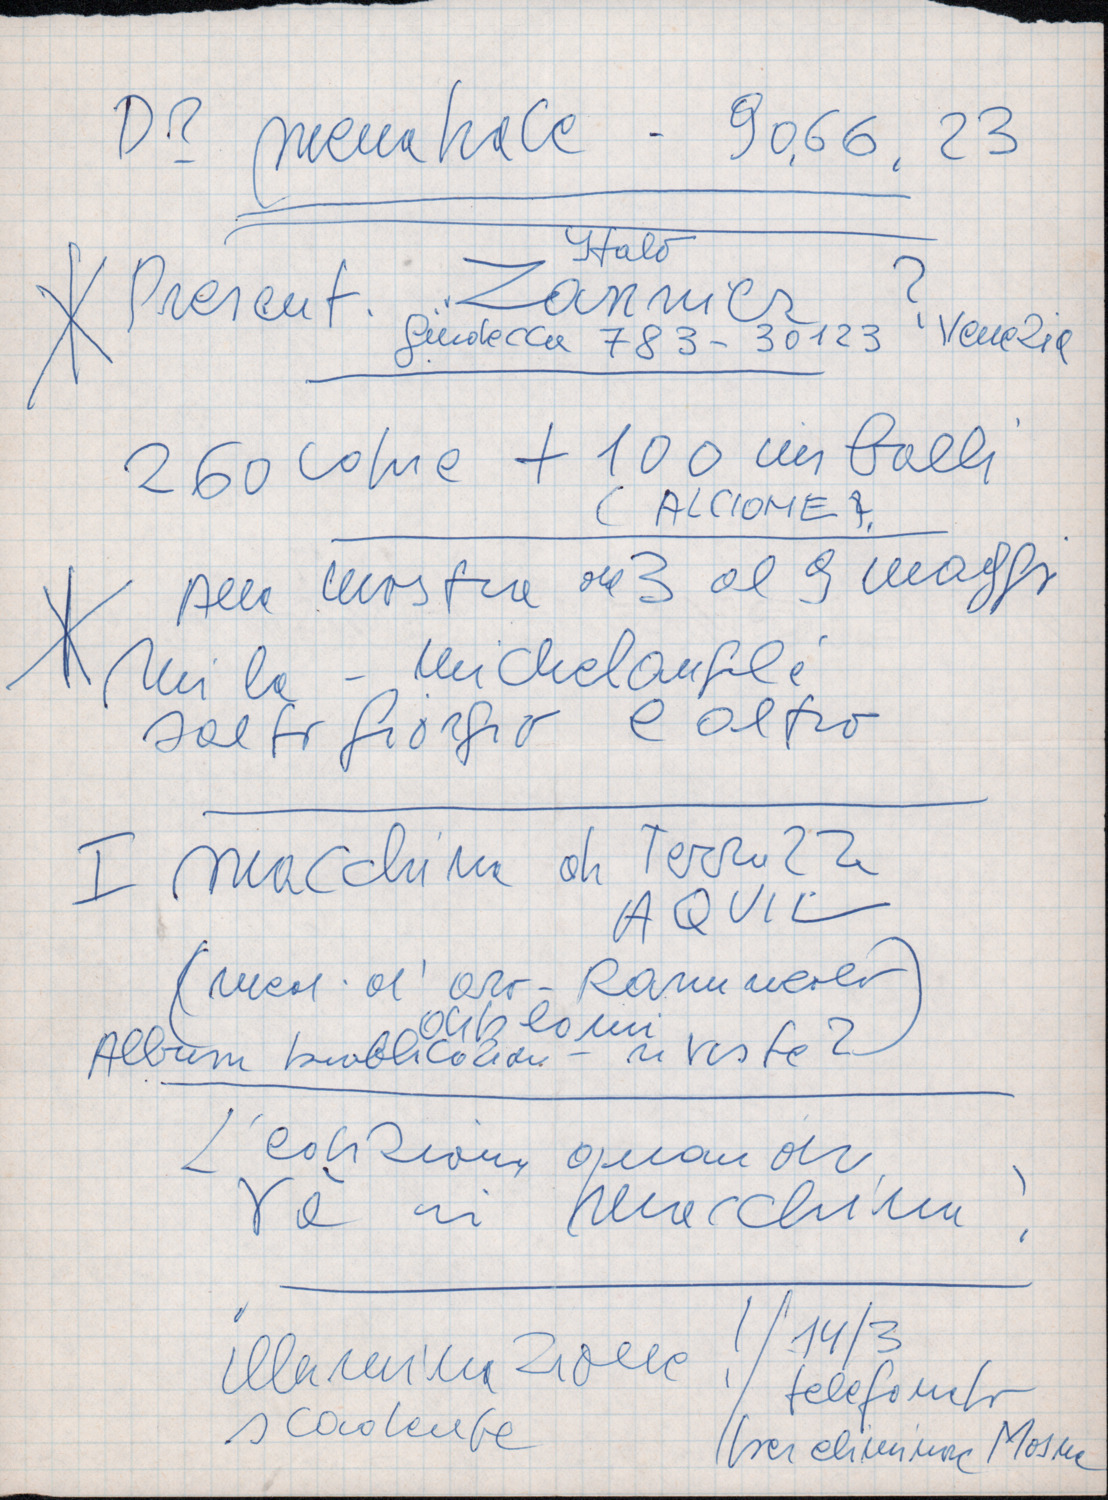 Dr - 90.66.23
Italo
Present. Zannier ?
Giudecca 783 - 30123 Venezia
260 copie + 100 imballi
(ALCIONE ?
Alla mostra da 3 al 9 maggio
Mila - Michelangelo
salto Giorgio e altro
I macchina di Terrazza
AQUIL
(med. d'oro -
diplomi
Album pubblicazioni - riviste ?
L'edizione quando
và in macchina ?
illuminazione ! // 14/3
scadente telefonato
per eliminare Mosna